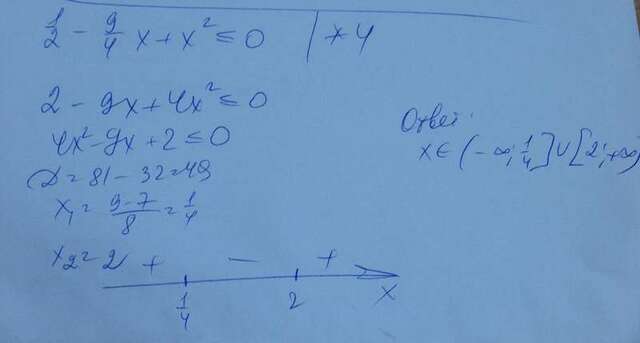 1/2 - 9/4 x + x² ≤ 0 | * 4
2 - 9x + 4x² ≤ 0
4x² - 9x + 2 ≤ 0
D = 81 - 32 = 49
x₁ = (9-7)/8 = 1/4
x₂ = 2
+ - +
1/4 2 x
Ответ:
x ∈ (-∞; 1/4] ∪ [2; +∞)